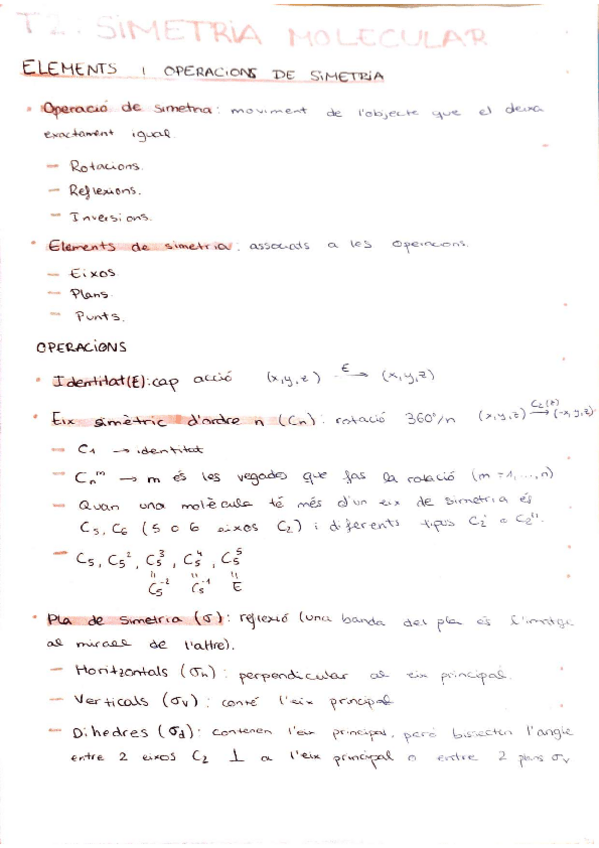 T2. SIMETRIA MOLECULAR
ELEMENTS i OPERACIONS DE SIMETRIA
• Operació de simetria: moviment de l'objecte que el deixa
exactament igual
— Rotacions.
— Reflexions.
— Inversions.
• Elements de simetria: associats a les operacions.
— Eixos
— Plans.
— Punts.
OPERACIONS
• Identitat (E): cap acció (x,y,z) E→ (x,y,z)
• Eix simètric d'ordre n (Cn): rotació 360º/n (x,y,z) C2(z)→ (-x,y,z)
— C1 → identitat
— Cn^m → m és les vegades que fas la rotació (m = 1, ..., n)
— Quan una molècula té més d'un eix de simetria és
C5, C6 (5 o 6 eixos C2) i diferents tipus C2' o C2''.
— C5, C5^2, C5^3, C5^4, C5^5
" " "
C5^-2 C5^-1 E
• Pla de simetria (σ): reflexió (una banda del pla és l'imatge
al mirall de l'altre).
— Horitzontals (σh): perpendicular al eix principal.
— Verticals (σv): conté l'eix principal
— Dihedres (σd): contenen l'eix principal, però bisecten l'angle
entre 2 eixos C2 ⊥ a l'eix principal o entre 2 plans σv